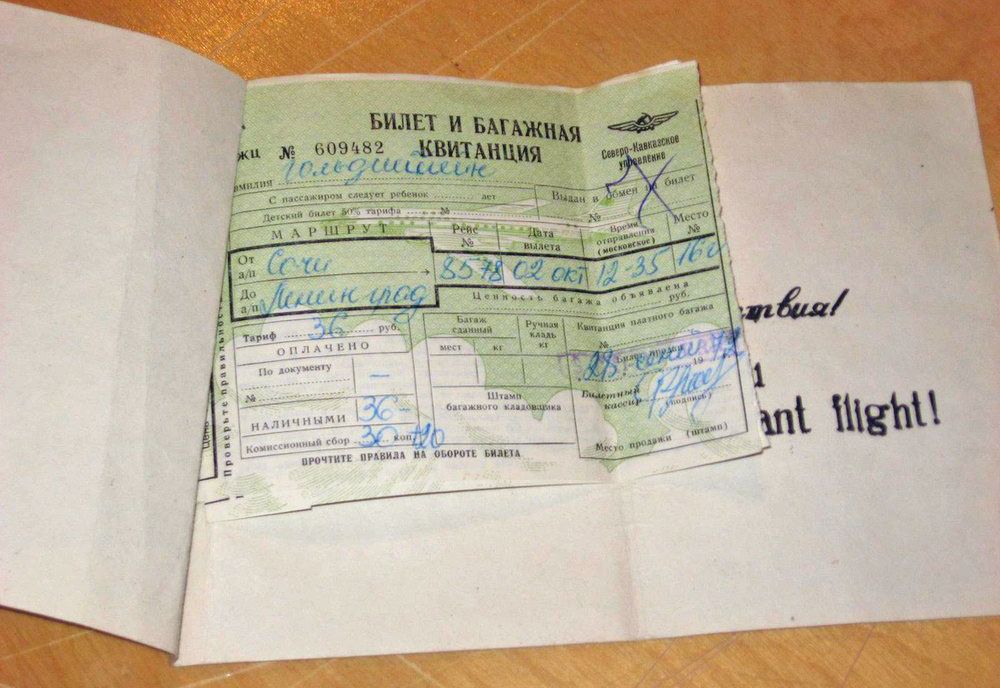 БИЛЕТ И БАГАЖНАЯ
КВИТАНЦИЯ
ЖЦ № 609482
Северо-Кавказское
управление
амилия Гольдштейн
С пассажиром следует ребенок лет
Выдан в обмен на билет
Детский билет 50% тарифа №
№
МАРШРУТ
Рейс №
Дата вылета
Время отправления (московское)
Место №
От а/п Сочи
8578 02 окт 12-35
До а/п Ленинград
Ценность багажа объявлена
руб.
Тариф 36 руб.
Багаж сданный
Ручная кладь кг
Квитанция платного багажа
№
ОПЛАЧЕНО
мест кг
По документу
—
№
Билет продан
28 19 72
Штамп
багажного кладовщика
Билетный
кассир
(подпись)
НАЛИЧНЫМИ 36-
Комиссионный сбор 30 коп.
Место продажи (штамп)
ПРОЧТИТЕ ПРАВИЛА НА ОБОРОТЕ БИЛЕТА
Проверьте правильнос
Цень
твия!
ant flight!